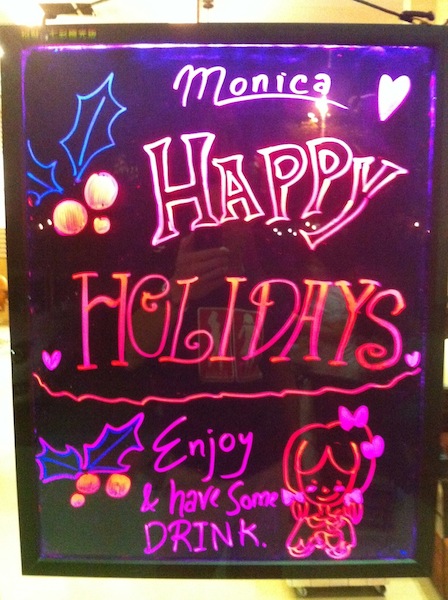 Monica
HAPPY
HOLIDAYS
Enjoy
& have some
DRINK.